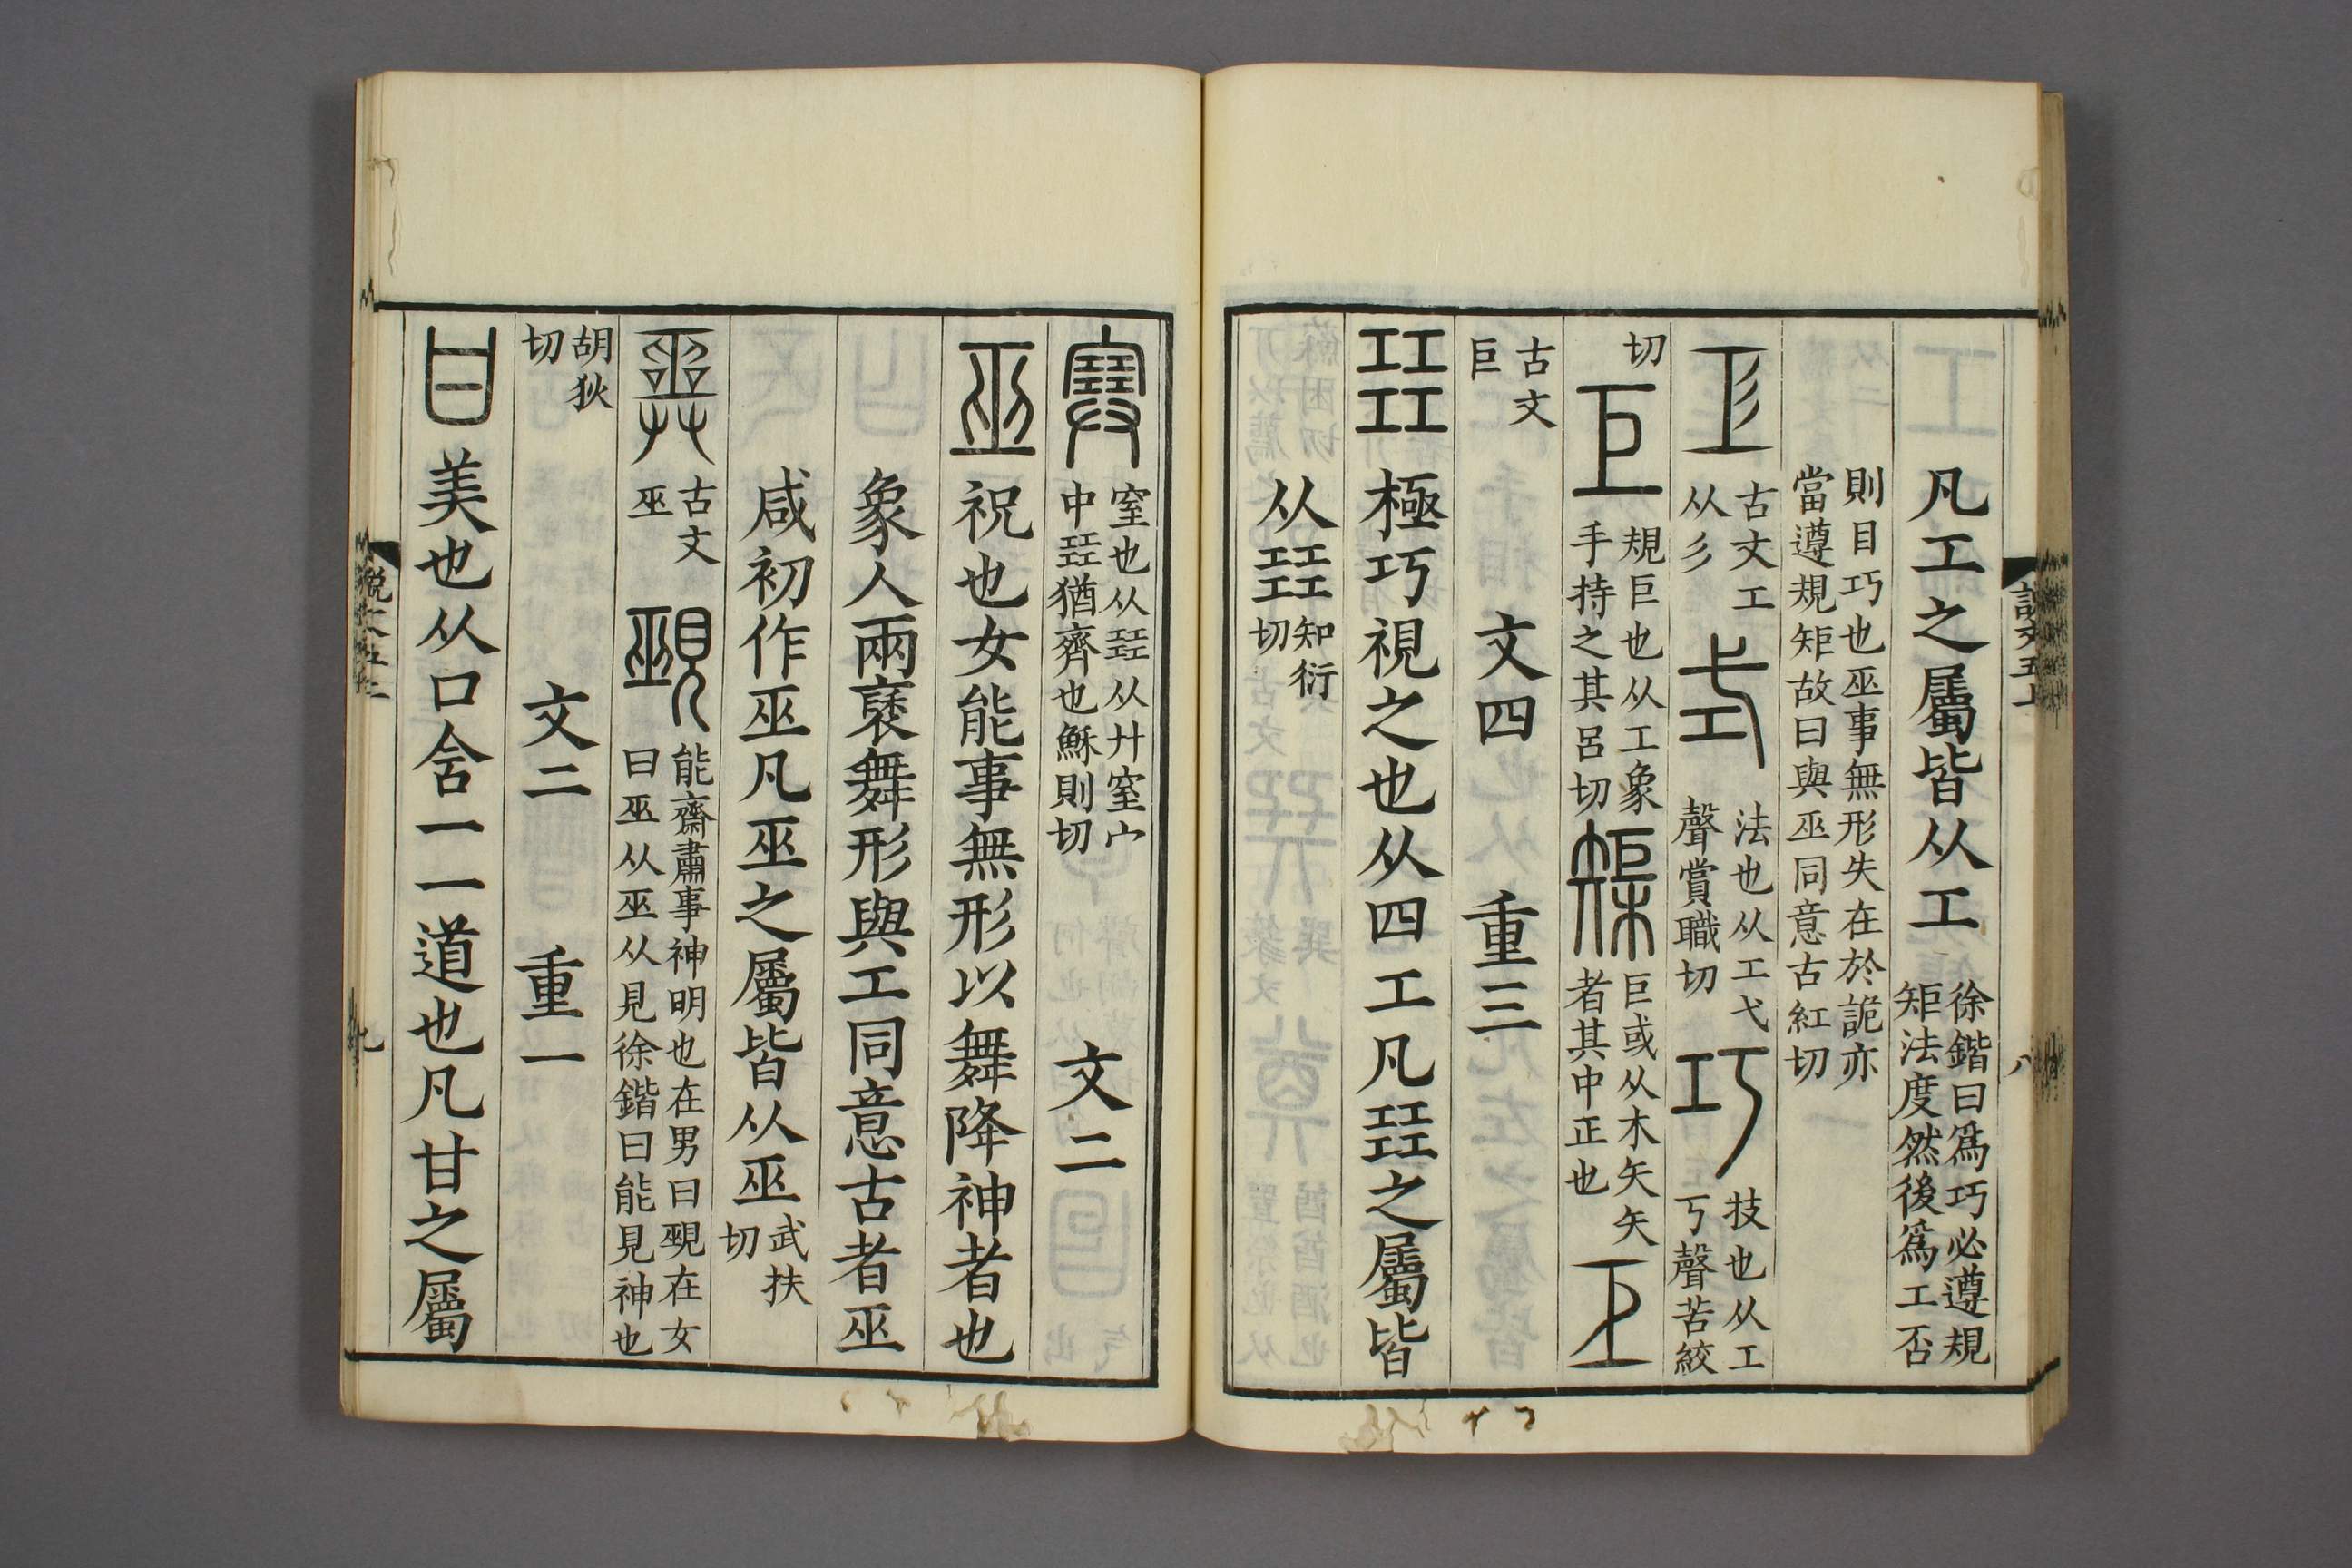 說文五上 八
凡工之屬皆从工 徐鍇曰爲巧必遵規矩法度然後爲工否
則目巧也巫事無形失在於詭亦當遵規矩故曰與巫同意古紅切
𢒄 古文工从彡 式 法也从工弋聲賞職切 巧 技也从工丂聲苦絞
切 巨 規巨也从工象手持之其呂切 榘 巨或从木矢矢者其中正也 𢀑
古文巨 文四 重三
㠭 極巧視之也从四工凡㠭之屬皆
从㠭 知衍切
𡫳 窒也从㠭从廾窒宀中㠭猶齊也穌則切 文二
巫 祝也女能事無形以舞降神者也
象人兩褎舞形與工同意古者巫
咸初作巫凡巫之屬皆从巫 武扶切
𢍮 古文巫 覡 能齋肅事神明也在男曰覡在女曰巫从巫从見徐鍇曰能見神也
胡狄切 文二 重一
甘 美也从口含一一道也凡甘之屬